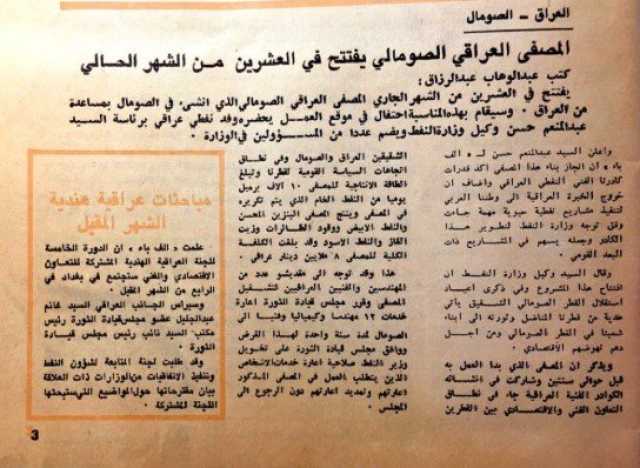 العراق - الصومال
المصفى العراقي الصومالي يفتتح في العشرين من الشهر الحالي
كتب عبدالوهاب عبدالرزاق:
يفتتح في العشرين من الشهر الجاري المصفى العراقي الصومالي الذي انشىء في الصومال بمساعدة
من العراق . وسيقام بهذه المناسبة احتفال في موقع العمل يحضره وفد نفطي عراقي برئاسة السيد
عبدالمنعم حسن وكيل وزارة النفط ويضم عددا من المسؤولين في الوزارة .
واعلن السيد عبدالمنعم حسن لـ « الف
باء » ان انجاز بناء هذا المصفى اكد قدرات
كادرنا الفني النفطي العراقي واضاف ان
خروج الخبرة العراقية الى وطننا العربي
لتنفيذ مشاريع نفطية حيوية مهمة جاءت
وفق توجه وزارة النفط لتطوير هذا
الكادر وجعله يسهم في المشاريع ذات
البعد القومي .
وقال السيد وكيل وزارة النفط ان
افتتاح هذا المشروع وفي ذكرى اعياد
استقلال القطر الصومالي الشقيق يأتي
هدية من قطرنا المناضل وثورته الى ابناء
شعبنا في القطر الصومالي ومن اجل
دعم نهوضهم الاقتصادي .
ويذكر ان المصفى الذي بدا العمل به
قبل حوالي سنتين وشاركت في انشائه
الكوادر الفنية العراقية جاء في نطاق
التعاون الفني والاقتصادي بين القطرين
الشقيقين العراق والصومال وفي نطاق
اتجاهات السياسة القومية لقطرنا وتبلغ
الطاقة الانتاجية للمصفى ١٠ الاف برميل
يوميا من النفط الخام الذي يتم تكريره
في المصفى وينتج المصفى البنزين المحسن
والنفط الابيض ووقود الطائرات وزيت
الغاز والنفط الاسود وقد بلغت الكلفة
الكلية للمصفى ٨ ملايين دينار عراقي .
هذا وقد توجه الى مقديشو عدد من
المهندسين والفنيين العراقيين لتشغيل
المصفى وقرر مجلس قيادة الثورة اعارة
خدمات ١٢ مهندسا وكيمياويا وفنيا الى
الصومال لمدة سنة واحدة لهذا الغرض
ووافق مجلس قيادة الثورة على تخويل
وزير النفط صلاحية اعارة خدمات الاشخاص
الذين يتطلب العمل في المصفى المذكور
اعارتهم وتمديد اعارتهم دون الرجوع الى
المجلس .
مباحثات عراقية هندية
الشهر المقبل
علمت « الف باء » ان الدورة الخامسة
للجنة العراقية الهندية المشتركة للتعاون
الاقتصادي والفني ستجتمع في بغداد في
الرابع من الشهر المقبل .
وسيراس الجانب العراقي السيد غانم
عبدالجليل عضو مجلس قيادة الثورة رئيس
مكتب السيد نائب رئيس مجلس قيادة
الثورة .
وقد طلبت لجنة المتابعة لشؤون النفط
وتنفيذ الاتفاقيات من الوزارات ذات العلاقة
بيان مقترحاتها حول المواضيع التي ستبحثها
اللجنة المشتركة .
3